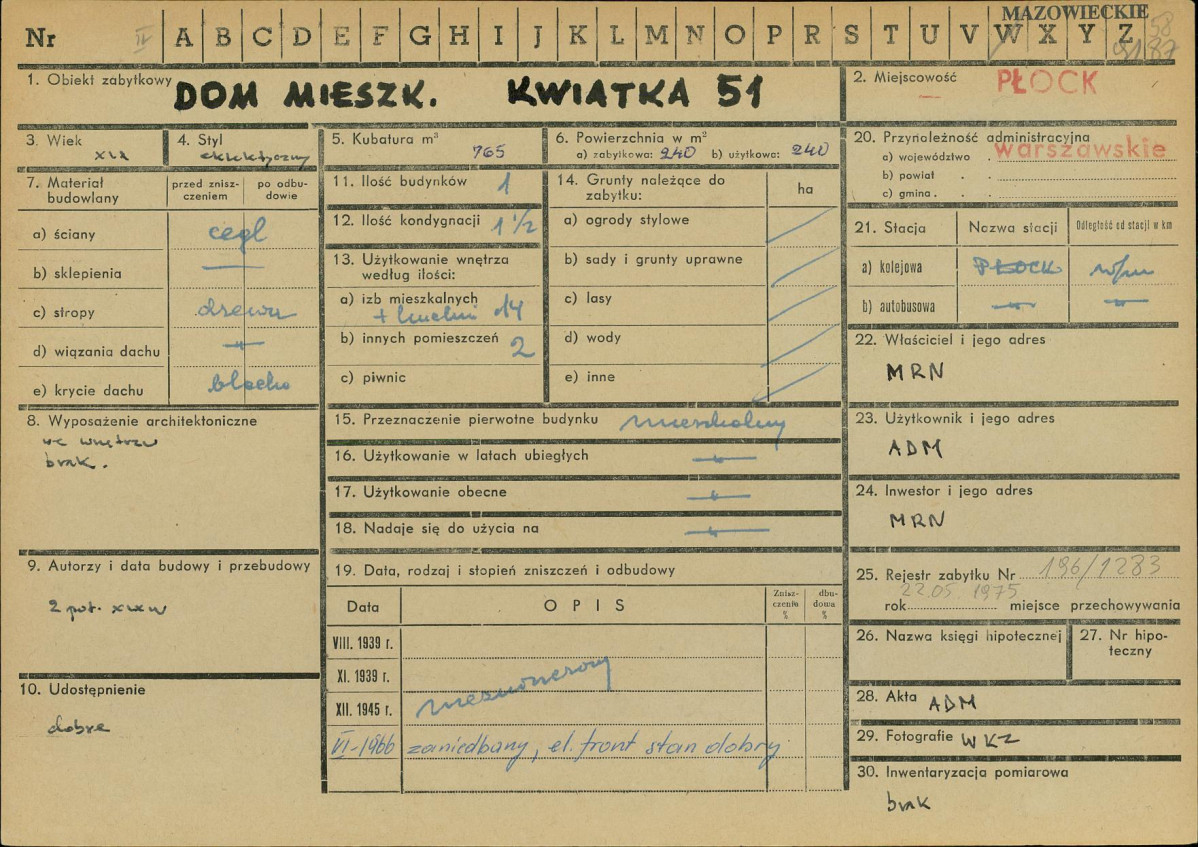 MAZOWIECKIE
Nr IV A B C D E F G H I J K L M N O P R S T U V W X Y Z
1. Obiekt zabytkowy
DOM MIESZK. KWIATKA 51
2. Miejscowość
PŁOCK
3. Wiek
XIX
4. Styl
eklektyczny
5. Kubatura m³
765
6. Powierzchnia w m²
a) zabytkowa: 240 b) użytkowa: 240
7. Materiał budowlany
przed znisz-
czeniem
po odbu-
dowie
a) ściany cegł
b) sklepienia —
c) stropy drewn
d) wiązania dachu —"—
e) krycie dachu blacha
8. Wyposażenie architektoniczne
we wnętrzu
brak.
9. Autorzy i data budowy i przebudowy
2 poł. XIX w
10. Udostępnienie
dobre
11. Ilość budynków 1
12. Ilość kondygnacji 1 1/2
13. Użytkowanie wnętrza
według ilości:
a) izb mieszkalnych
+ kuchni 14
b) innych pomieszczeń 2
c) piwnic
14. Grunty należące do
zabytku:
ha
a) ogrody stylowe
b) sady i grunty uprawne
c) lasy
d) wody
e) inne
15. Przeznaczenie pierwotne budynku mieszkalny
16. Użytkowanie w latach ubiegłych —"—
17. Użytkowanie obecne —"—
18. Nadaje się do użycia na —"—
19. Data, rodzaj i stopień zniszczeń i odbudowy
Data OPIS
Znisz-
czenie
%
dbu-
dowa
%
VIII. 1939 r.
XI. 1939 r.
XII. 1945 r.
VI-1966 zaniedbany, el. front stan dobry
20. Przynależność administracyjna
a) województwo . warszawskie
b) powiat . .
c) gmina . . .
21. Stacja Nazwa stacji Odległość od stacji w km
a) kolejowa PŁOCK
b) autobusowa —"— —"—
22. Właściciel i jego adres
MRN
23. Użytkownik i jego adres
ADM
24. Inwestor i jego adres
MRN
25. Rejestr zabytku Nr 196/1283
22.05 1975
rok miejsce przechowywania
26. Nazwa księgi hipotecznej
27. Nr hipo-
teczny
28. Akta ADM
29. Fotografie WKZ
30. Inwentaryzacja pomiarowa
brak